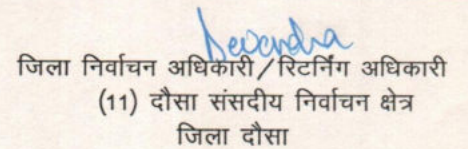 Devendra
जिला निर्वाचन अधिकारी/रिटर्निंग अधिकारी
(11) दौसा संसदीय निर्वाचन क्षेत्र
जिला दौसा